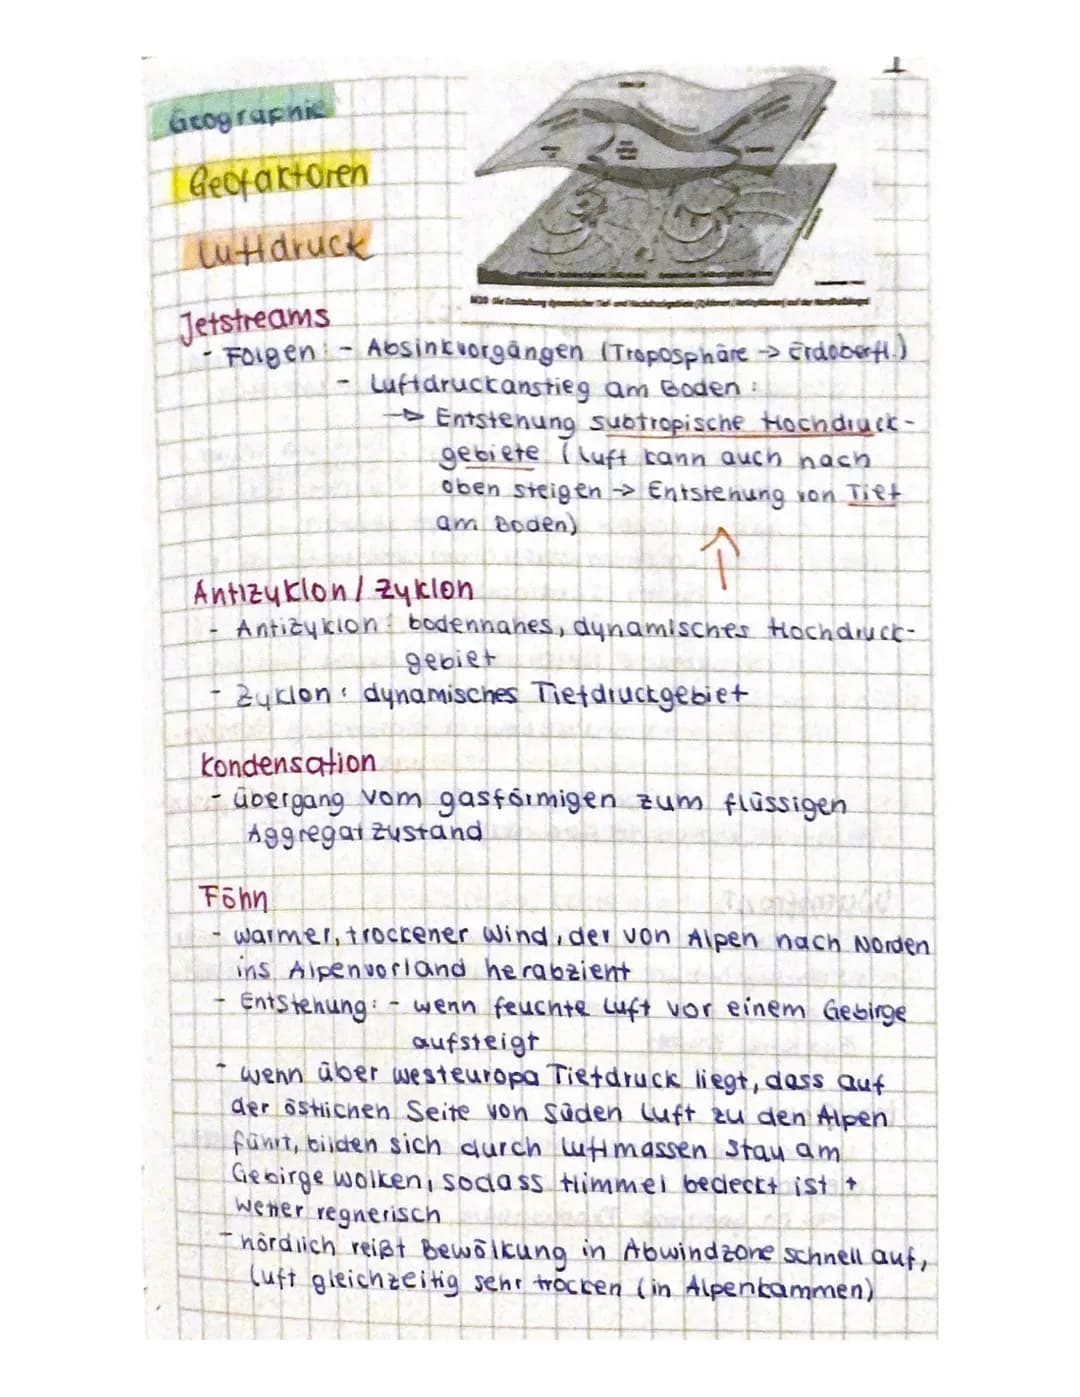 1
Geographie
Geofaktoren
Luftdruck
M20 Die Entstehung dynamischer Tief- und Hochdruckgebiete (Zyklonen/Antizyklonen) auf der Nordhalbkugel
Jetstreams
- Folgen: - Absinkvorgängen (Troposphäre → Erdoberfl.)
- Luftdruckanstieg am Boden:
→ Entstehung subtropische Hochdruck-
gebiete (Luft kann auch nach
oben steigen → Entstehung von Tief
am Boden)
Antizyklon / Zyklon
- Antizyklon: bodennahes, dynamisches Hochdruck-
gebiet
- Zyklon: dynamisches Tiefdruckgebiet
Kondensation
- übergang vom gasförmigen zum flüssigen
Aggregatzustand
Föhn
- warmer, trockener Wind, der von Alpen nach Norden
ins Alpenvorland herabzieht
- Entstehung: - wenn feuchte Luft vor einem Gebirge
aufsteigt
- wenn über Westeuropa Tiefdruck liegt, dass auf
der östlichen Seite von Süden Luft zu den Alpen
führt, bilden sich durch Luftmassen Stau am
Gebirge Wolken, sodass Himmel bedeckt ist +
Wetter regnerisch
- nördlich reißt Bewölkung in Abwindzone schnell auf,
Luft gleichzeitig sehr trocken (in Alpenkammen)